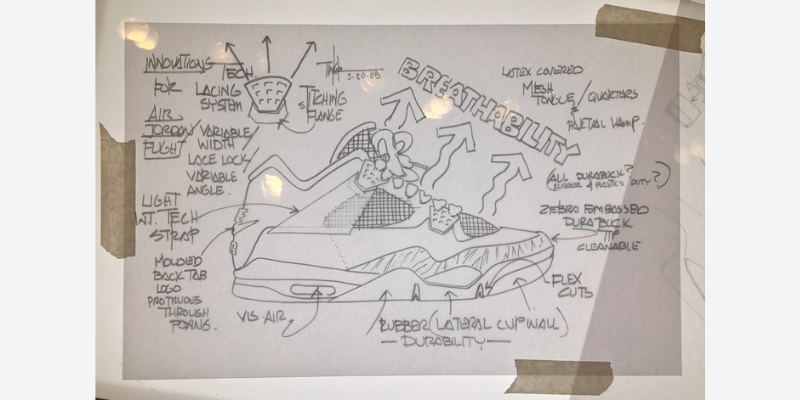 INNOVATIONS
FOR
AIR
JORDAN
FLIGHT
TECH
LACING
SYSTEM
STITCHING
FLANGE
VARIABLE
WIDTH
LACE LOCK/
VARIABLE
ANGLE.
3-20-88
BREATHABILITY
LOTEX COVERED
MESH
TONGUE/QUARTERS
&
PARTIAL VAMP.
(ALL DURABUCK?
RUBBER & PLASTICS DUTY?)
ZEBRA EMBOSSED
DURABUCK
TIP
CLEANABLE
LIGHT
WT. TECH
STRAP
MOLDED
BACK TAB
LOGO
PROTRUDES
THROUGH
FOXING.
VIS-AIR
FLEX
CUTS
RUBBER (LATERAL CUPWALL)
— DURABILITY —